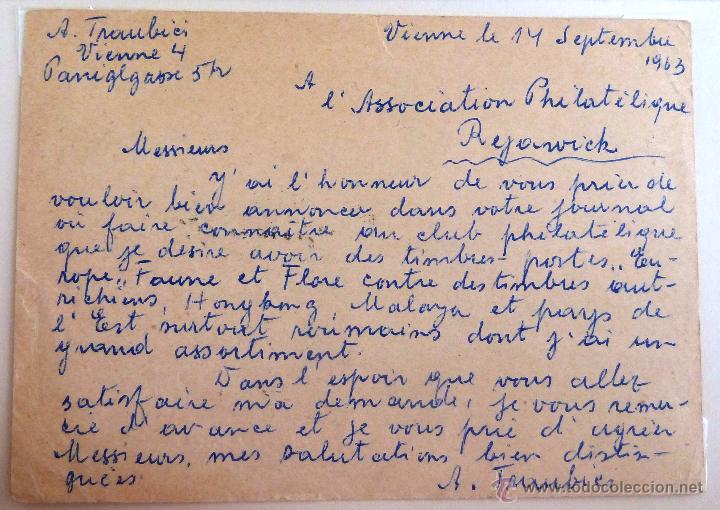 A. Traubici
Vienne 4
Paniglgasse 5/2
Vienne le 14 Septembre
1963
A
l'Association Philatélique
Rejawick
Messieurs
Y'ai l'honneur de vous prier de
vouloir bien annoncer dans votre journal
où faire connaître au club philatélique
que je désire avoir des timbres-postes „Eu-
rope„ Faune et Flore contre des timbres aut-
richiens, Hongkong Malaya et pays de
l'Est surtout roumains dont j'ai un
grand assortiment.
Dans l'espoir que vous allez
satisfaire ma demande, je vous remer-
cie d'avance et je vous prie d'agréer
Messieurs, mes salutations bien distin-
guées
A. Traubici
www.todocoleccion.net